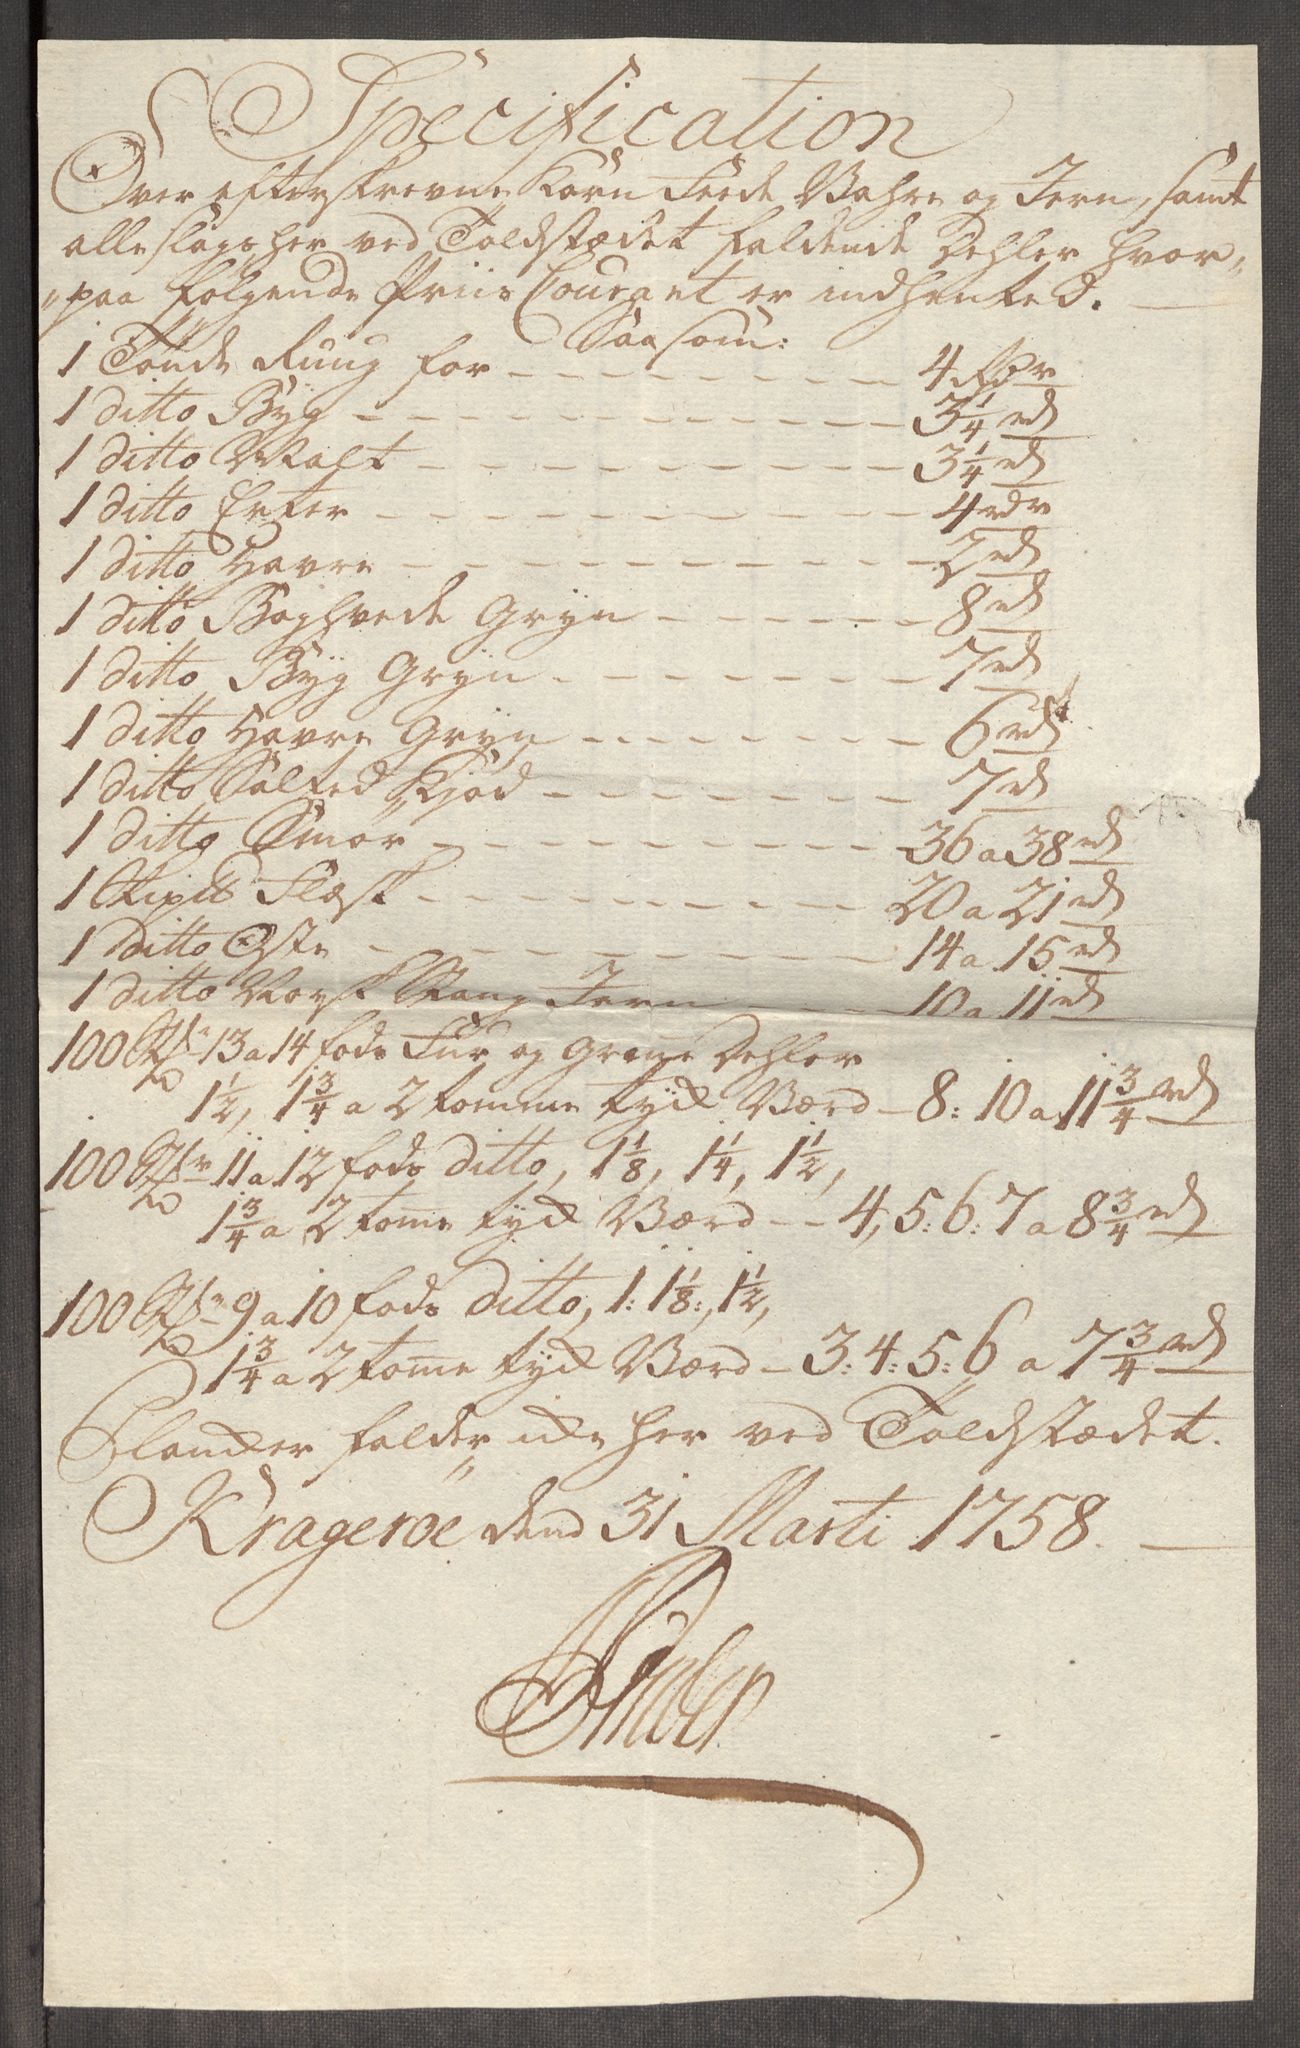 Specification
Over efterskrevne Korn Feede Vahre og Jern, samt
alle slags her ved Toldstædet faldende Dehler hvor„
„paa følgende Priis Courant er indhented.
Saasom:
1 Tønde Ruug for — 4 Rdr
1 ditto Byg — 3 1/4 rd
1 ditto Malt — 3 1/4 rd
1 ditto Erter — 4 rdr
1 ditto Havre — 2 rd
1 ditto Boghvede Gryn — 8 rd
1 ditto Byg Gryn — 7 rd
1 ditto Havre Gryn — 6 rd
1 ditto Salted Kjød — 7 rd
1 ditto Smør — 36 a 38 rd
1 Skipd Flæsk — 20 a 21 rd
1 ditto Oste — 14 a 15 rd
1 ditto Norsk Stang Jern — 10 a 11 rd
100 13 a 14 fods Fur og Grane Dehler
1 1/2, 1 3/4 a 2 tomme tyck Værd — 8: 10 a 11 3/4 rd
100 11 a 12 fods ditto, 1 1/8, 1 1/4, 1 1/2,
1 3/4 a 2 tome tyck Værd — 4, 5: 6: 7 a 8 3/4 rd
100 9 a 10 fods ditto, 1: 1 1/8:, 1 1/2,
1 3/4 a 2 tome tyck Værd — 3: 4: 5: 6 a 7 3/4 rd
Plancker falder icke her ved Toldstædet.
Krageröe dend 31 Marti 1758.